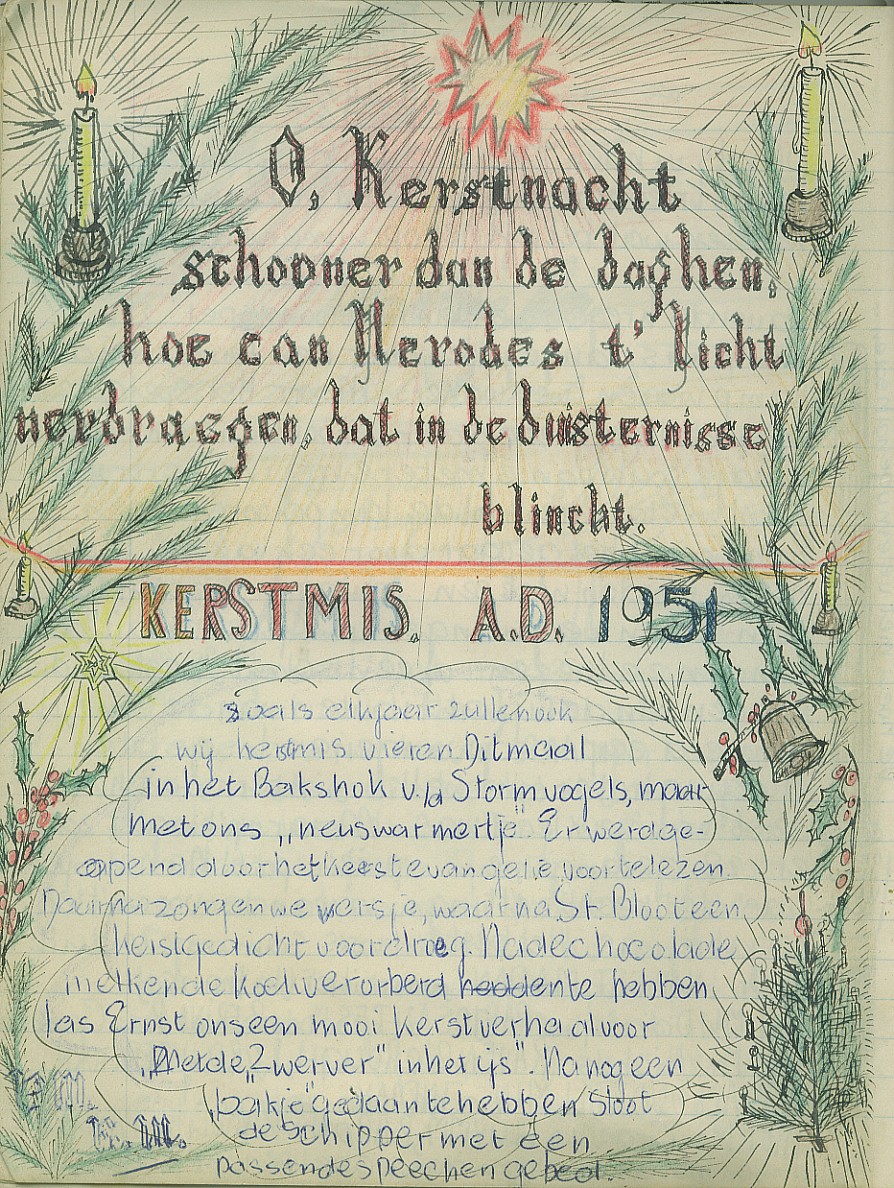 O, Kerstnacht
schooner dan de daghen,
hoe can Herodes t' licht
verdraegen, dat in de duisternisse
blincht.
KERSTMIS. A.D. 1951
zoals elkjaar zullenook
wij kerstmis vieren Ditmaal
in het Bakshok v/d Stormvogels, maar
met ons „neuswarmertje" Er werdge-
opend doorhetkerstevangelie voortelezen.
Daarna zongen we versje, waarna St. Blooteen
kerstgedicht voordroeg. Nadechocolade
metkende koekverorberd heddente hebben
las Ernst onseen mooi kerstverhaalvoor
„Metde„Zwerver" inhet ijs". Nanogeen
„bakje" gedaantehebben sloot
deSchippermet een
passendespeechengebed.